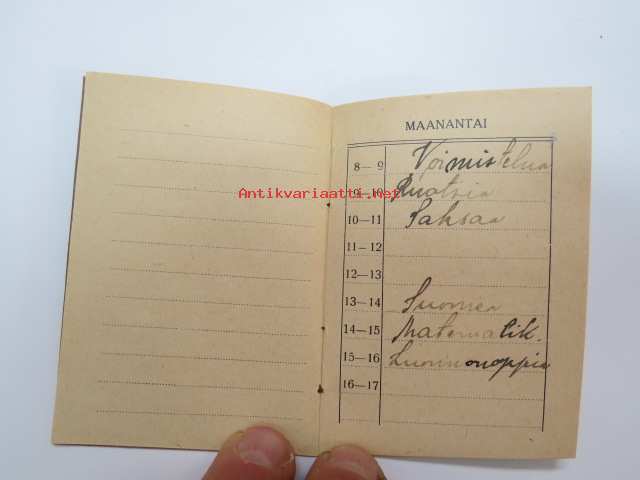 MAANANTAI
8—9 Voimistelua
9—10 Ruotsia
Antikvariaatti.net
10—11 Saksaa
11—12
12—13
13—14 Suomea
14—15 Matematik.
15—16 Luonnonoppia
16—17